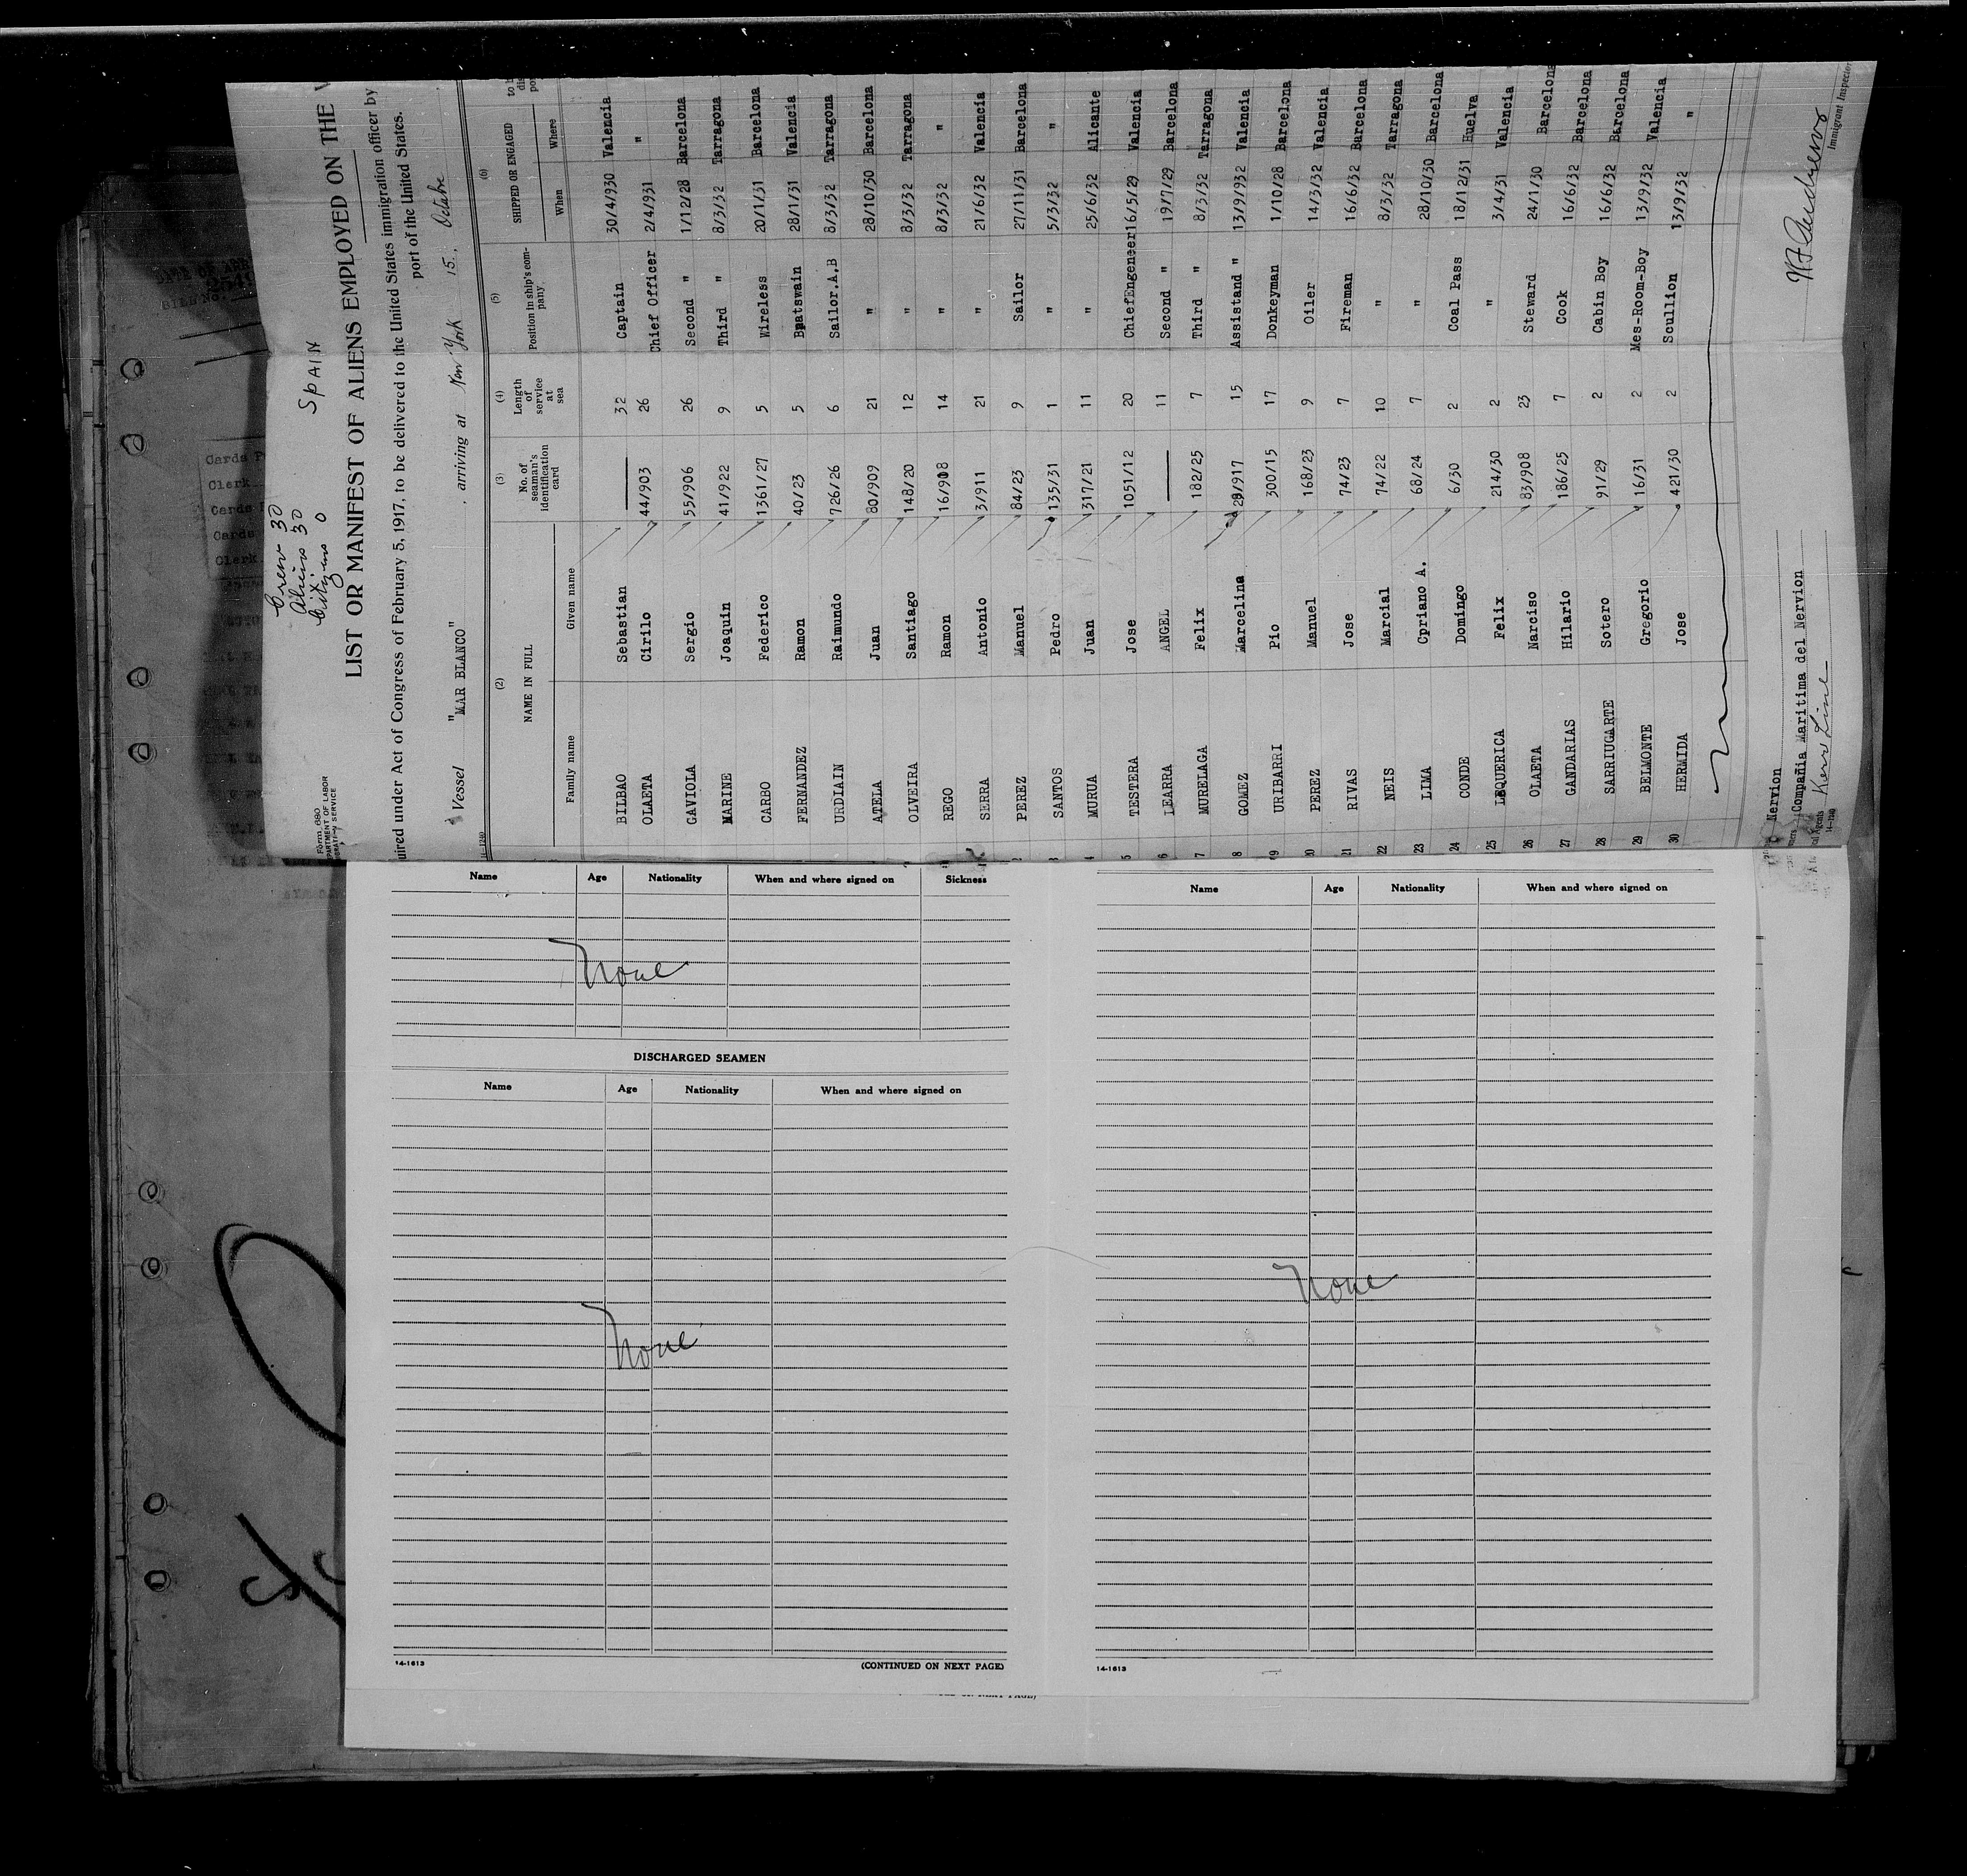 Crew 30
Aliens 30
Citizens 0
SPAIN
Form 680
LIST OR MANIFEST OF ALIENS EMPLOYED ON THE
uired under Act of Congress of February 5, 1917, to be delivered to the United States immigration officer by
port of the United States.
Vessel "MAR BLANCO" arriving at New York 15. Octubre
14-1240
(2) (3) (4) (5) (6)
NAME IN FULL No. of seaman's identification card Length of service at sea Position in ship's company SHIPPED OR ENGAGED
Family name Given name When Where
BILBAO Sebastian —— 32 Captain 30/4/930 Valencia
OLAETA Cirilo 44/903 26 Chief Officer 2/4/931 "
GAVIOLA Sergio 55/906 26 Second " 1/12/28 Barcelona
MARINE Joaquin 41/922 9 Third " 8/3/32 Tarragona
CARBO Federico 1361/27 5 Wireless 20/1/31 Barcelona
FERNANDEZ Ramon 40/23 5 Boatswain 28/1/31 Valencia
URDIAIN Raimundo 726/26 6 Sailor.A.B 8/3/32 Tarragona
ATELA Juan 80/909 21 " 28/10/30 Barcelona
OLVEIRA Santiago 148/20 12 " 8/3/32 Tarragona
REGO Ramon 16/908 14 " 8/3/32 "
SERRA Antonio 3/911 21 " 21/6/32 Valencia
2 PEREZ Manuel 84/23 9 Sailor 27/11/31 Barcelona
3 SANTOS Pedro 135/31 1 " 5/3/32 "
4 MURUA Juan 317/21 11 " 25/6/32 Alicante
5 TESTERA Jose 1051/12 20 ChiefEngeneer 16/5/29 Valencia
6 LEARRA ANGEL —— 11 Second " 19/7/29 Barcelona
7 MURELAGA Felix 182/25 7 Third " 8/3/32 Tarragona
8 GOMEZ Marcelina 29/917 15 Assistand " 13/9/932 Valencia
19 URIBARRI Pio 300/15 17 Donkeyman 1/10/28 Barcelona
20 PEREZ Manuel 168/23 9 Oiler 14/3/32 Valencia
21 RIVAS Jose 74/23 7 Fireman 16/6/32 Barcelona
22 NEIS Marcial 74/22 10 " 8/3/32 Tarragona
23 LIMA Cpriano A. 68/24 7 " 28/10/30 Barcelona
24 CONDE Domingo 6/30 2 Coal Pass 18/12/31 Huelva
25 LEQUERICA Felix 214/30 2 " 3/4/31 Valencia
26 OLAETA Narciso 83/908 23 Steward 24/1/30 Barcelona
27 GANDARIAS Hilario 186/25 7 Cook 16/6/32 Barcelona
28 SARRIUGARTE Sotero 91/29 2 Cabin Boy 16/6/32 Barcelona
29 BELMONTE Gregorio 16/31 2 Mes-Room-Boy 13/9/32 Valencia
30 HERMIDA Jose 421/30 2 Scullion 13/9/32 "
Nervion
Compañia Maritima del Nervion
Agents Kerr Line
14-1240
Immigrant Inspector
Name Age Nationality When and where signed on Sickness
None
DISCHARGED SEAMEN
Name Age Nationality When and where signed on
None
14-1613
(CONTINUED ON NEXT PAGE)
Name Age Nationality When and where signed on
None
14-1613